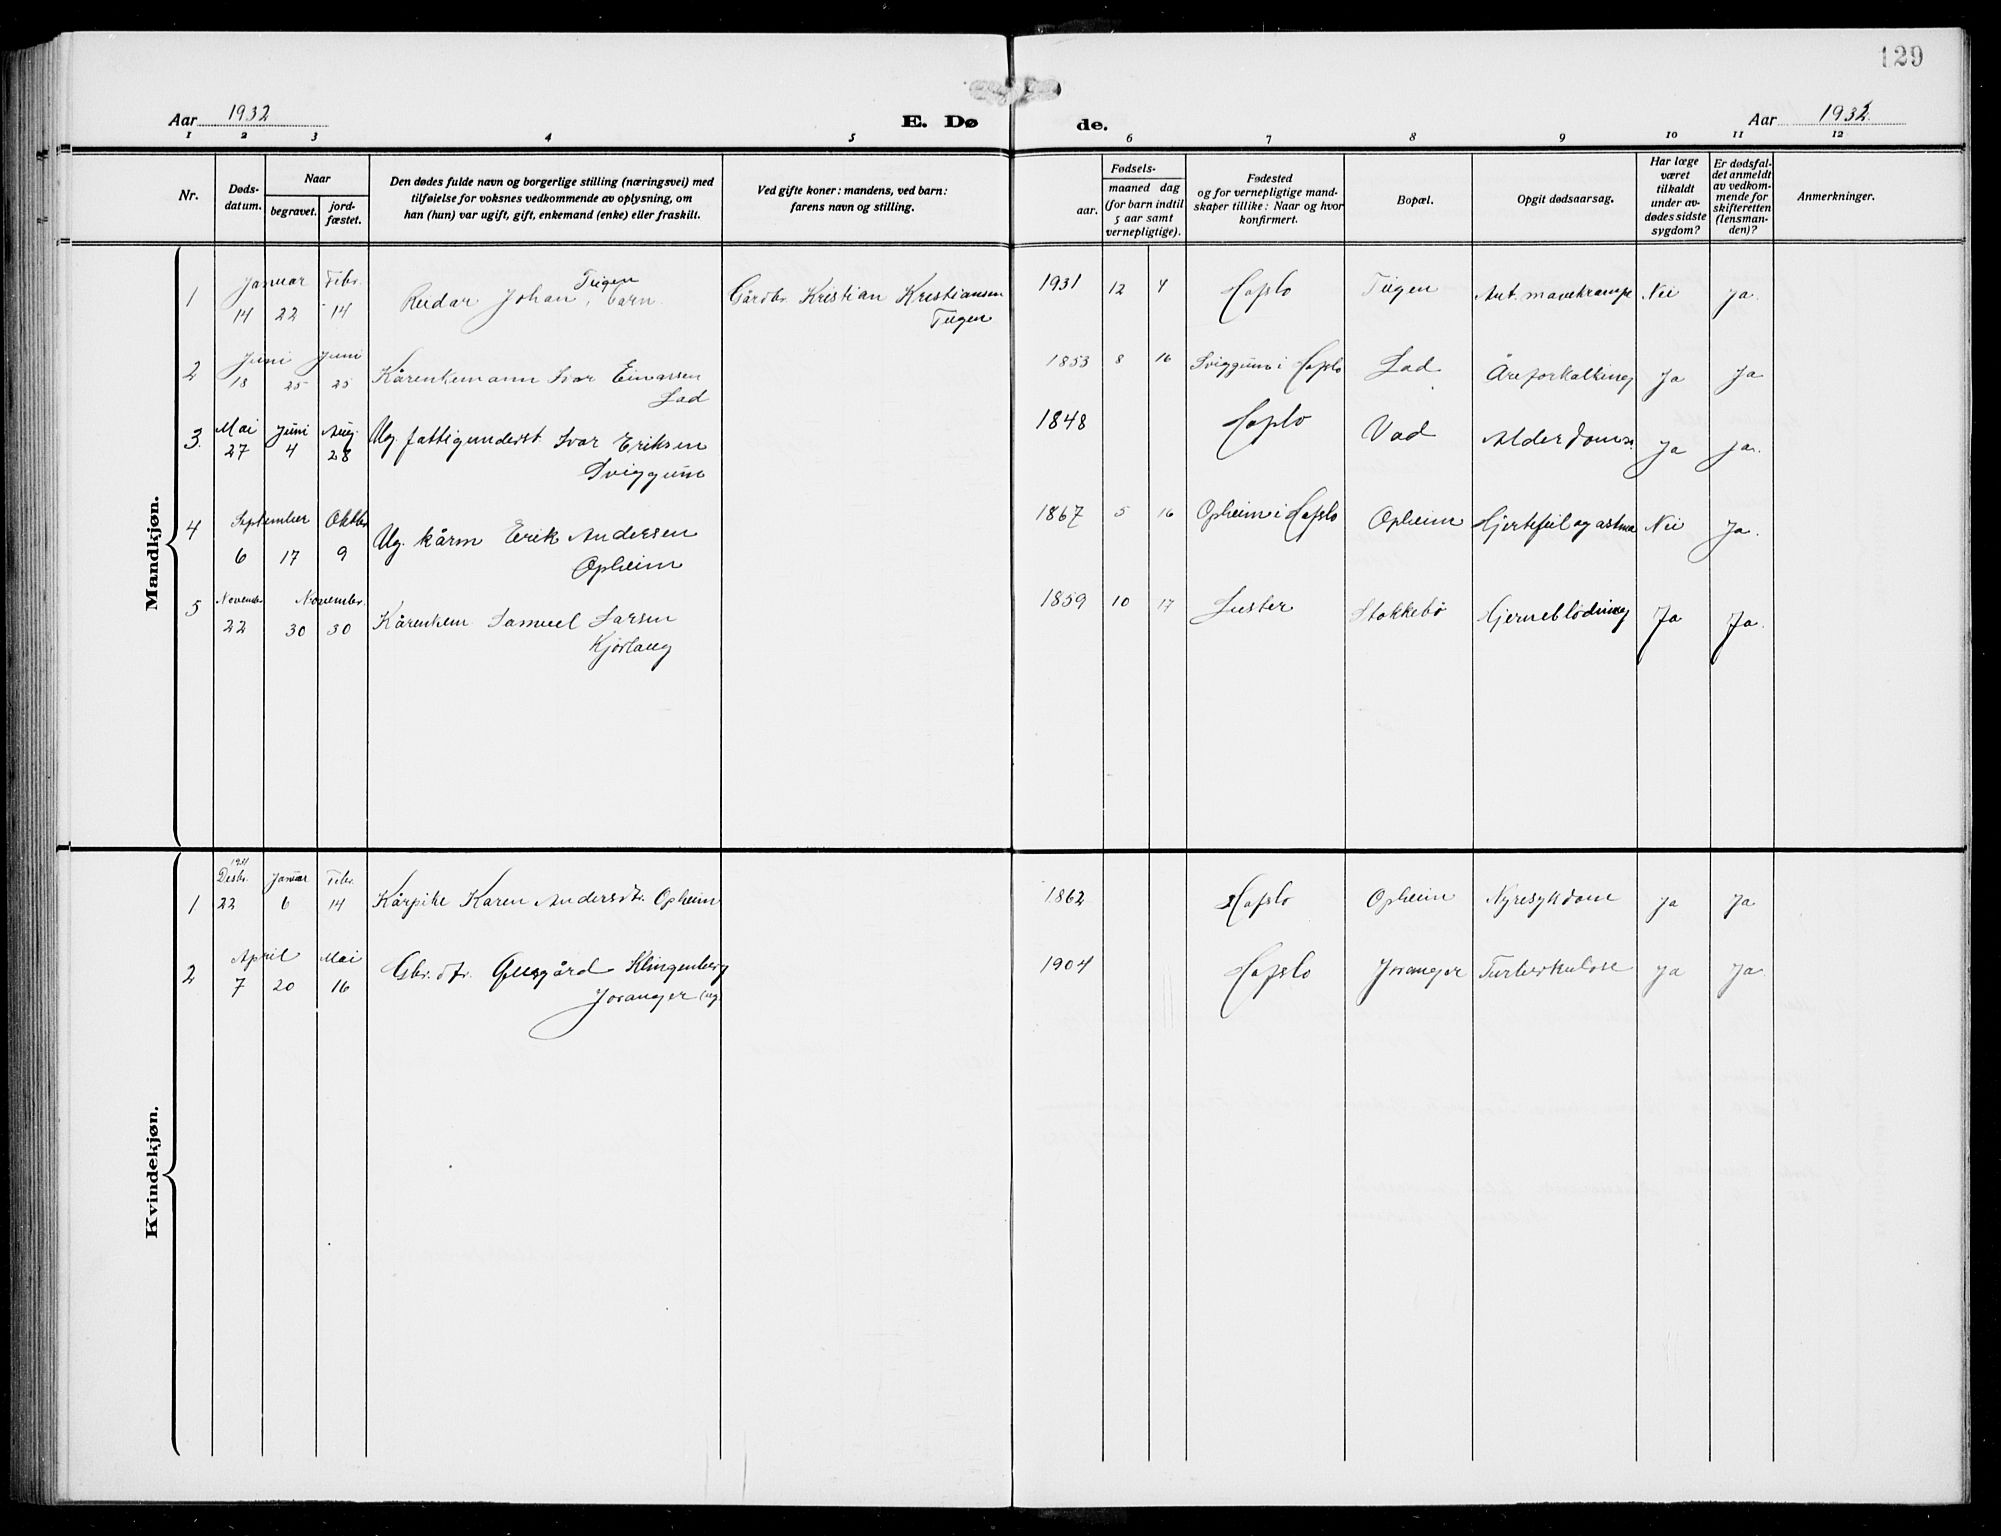 129
Aar 1932
E. Døde.
Aar 1932
1 2 3 4 5 6 7 8 9 10 11 12
Nr.
Døds-
datum.
Naar
begravet.
jord-
fæstet.
Den dødes fulde navn og borgerlige stilling (næringsvei) med
tilføielse for voksnes vedkommende av oplysning, om
han (hun) var ugift, gift, enkemand (enke) eller fraskilt.
Ved gifte koner: mandens, ved barn:
farens navn og stilling.
Fødsels-
aar.
maaned dag
(for barn indtil
5 aar samt
vernepligtige).
Fødested
og for vernepligtige mand-
skaper tillike: Naar og hvor
konfirmert.
Bopæl.
Opgit dødsaarsag.
Har læge
været
tilkaldt
under av-
dødes sidste
sygdom?
Er dødsfal-
det anmeldt
av vedkom-
mende for
skifteretten
(lensman-
den)?
Anmerkninger.
Mandkjøn.
1 Januar 14 22 Febr. 14 Reidar Johan Tugen, barn Gårdbr. Kristian Kristiansen Tugen 1931 12 4 Hafslo Tugen Ant. mavekrampe Nei Ja.
2 Juni 18 25 Juni 25 Kårenkemann Ivar Einarsen Lad 1853 8 16 Sviggum i Hafslo Lad Åreforkalkning Ja Ja
3. Mai 27 Juni 4 Aug. 28 Ug. fattigunderst Ivar Eriksen Sviggum 1848 Hafslo Vad Alderdoms. Ja Ja.
4 September 6 17 Oktbr. 9 Ug. kårm Erik Andersen Opheim 1867 5 16 Opheim i Hafslo Opheim Hjertefeil og astma Nei Ja.
5 Novembr. 22 Novembr. 30 30 Kårenkem Samuel Larsen Kjørlaug 1859 10 17 Luster Stokkebø Hjerneblødning Ja Ja.
Kvindekjøn.
1 1931 Desbr. 22 Januar 6 Febr. 14 Kårpike Karen Andersdtr. Opheim 1862 Hafslo Opheim Nyresykdom Ja Ja
2 April 7 20 Mai 16 Gbr.dtr. Klingenberg Joranger (ug. 1904 Hafslo Joranger Tuberkulose Ja Ja